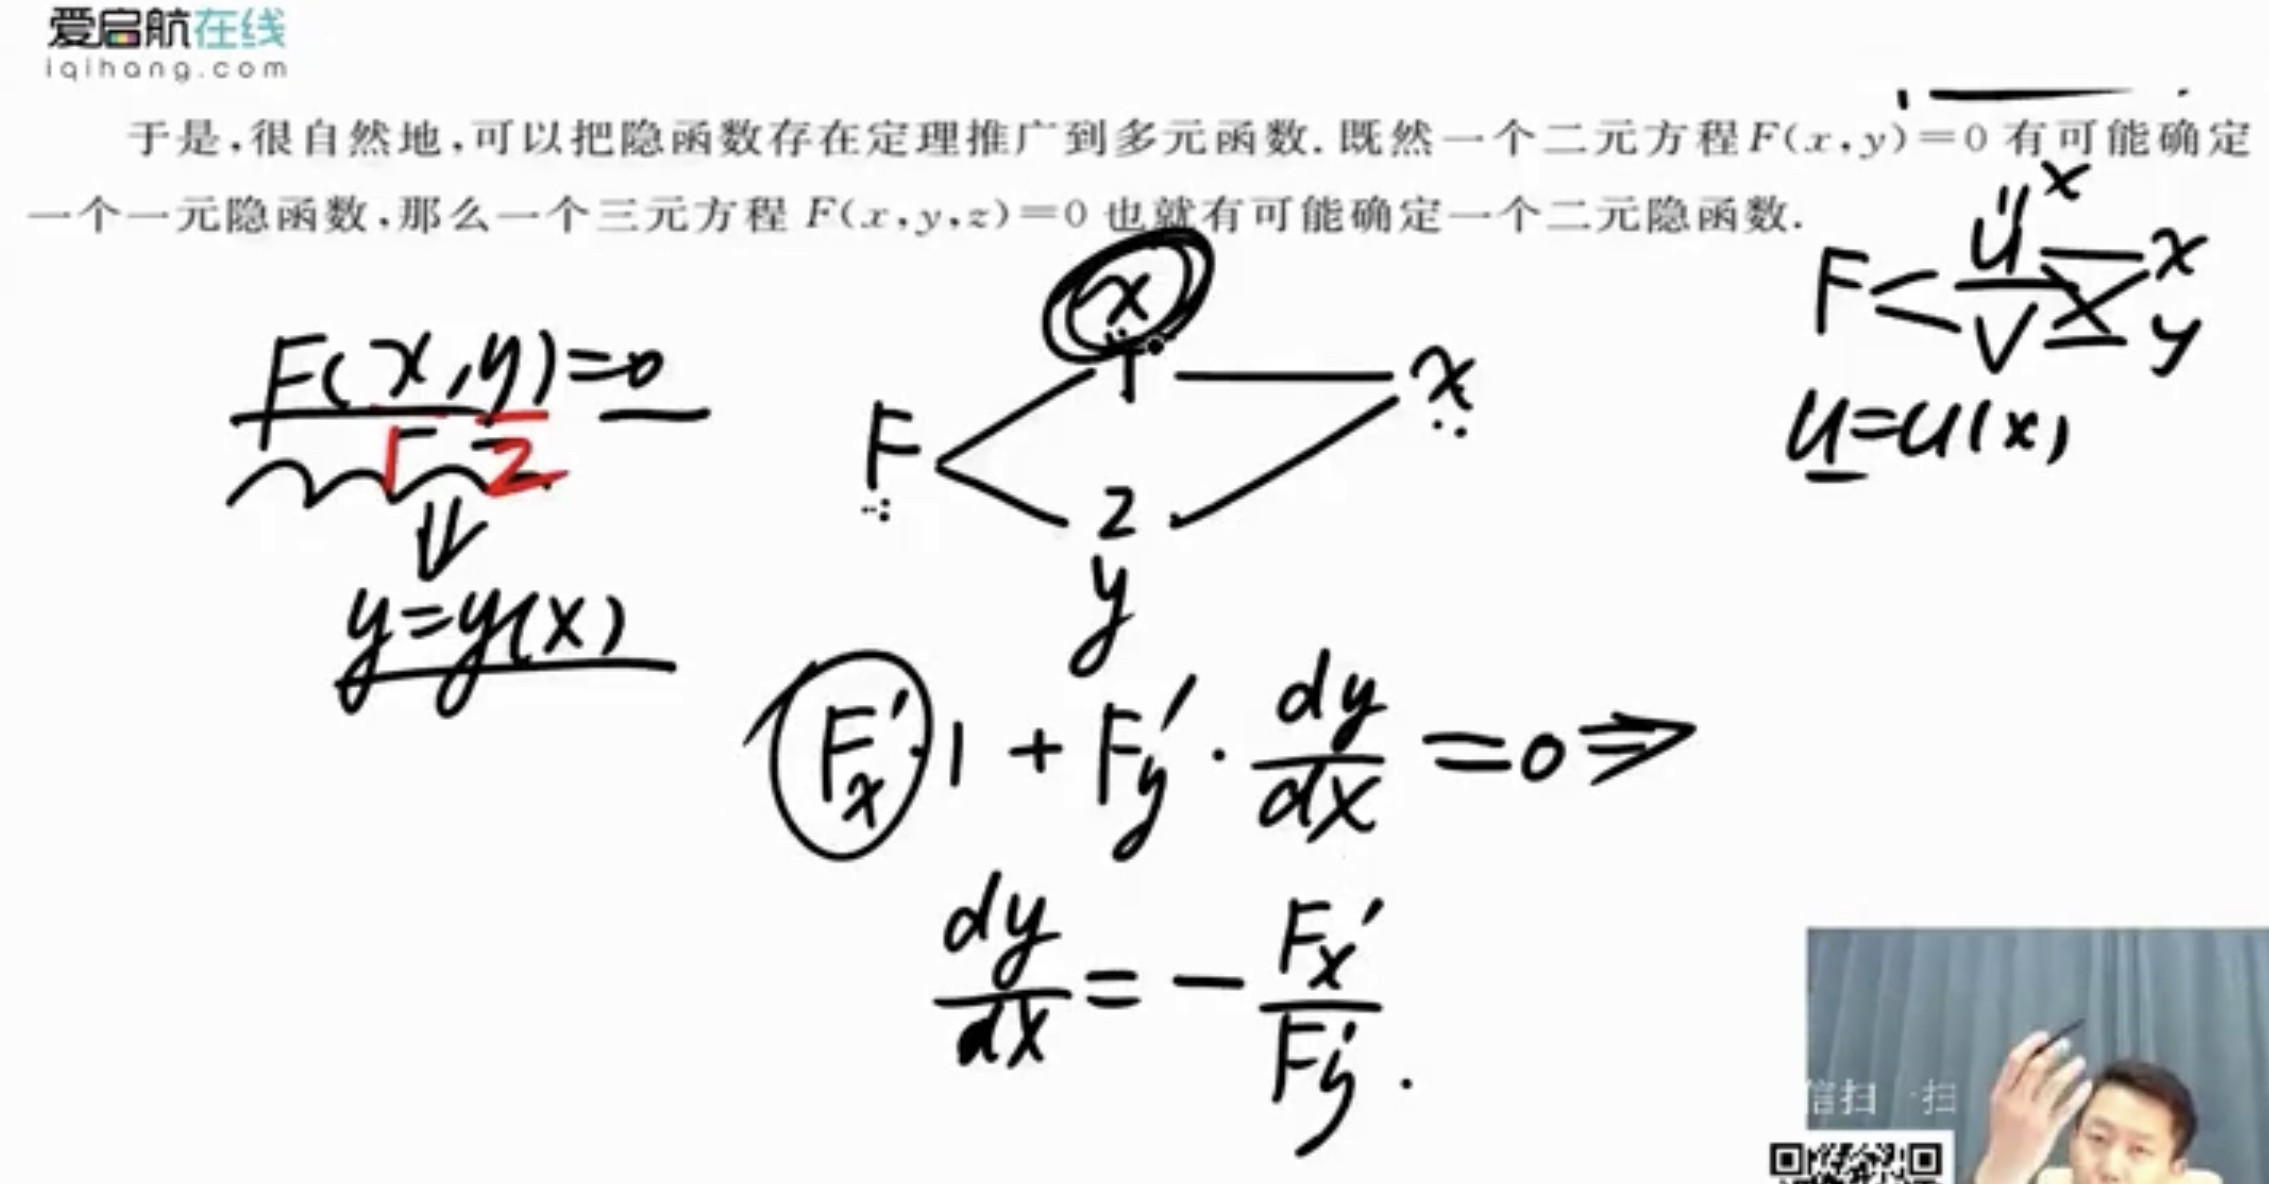 爱启航在线
iqihang.com
于是,很自然地,可以把隐函数存在定理推广到多元函数.既然一个二元方程F(x,y)=0 有可能确定
一个一元隐函数,那么一个三元方程 F(x,y,z)=0 也就有可能确定一个二元隐函数.
F(x,y)=0
1 2
y=y(x)
x
1
F
x
2
y
x
u
F
x
V
y
u=u(x)
F'x·1 + F'y · dy/dx =0 ⇒
dy/dx = - F'x/F'y .
信扫一扫